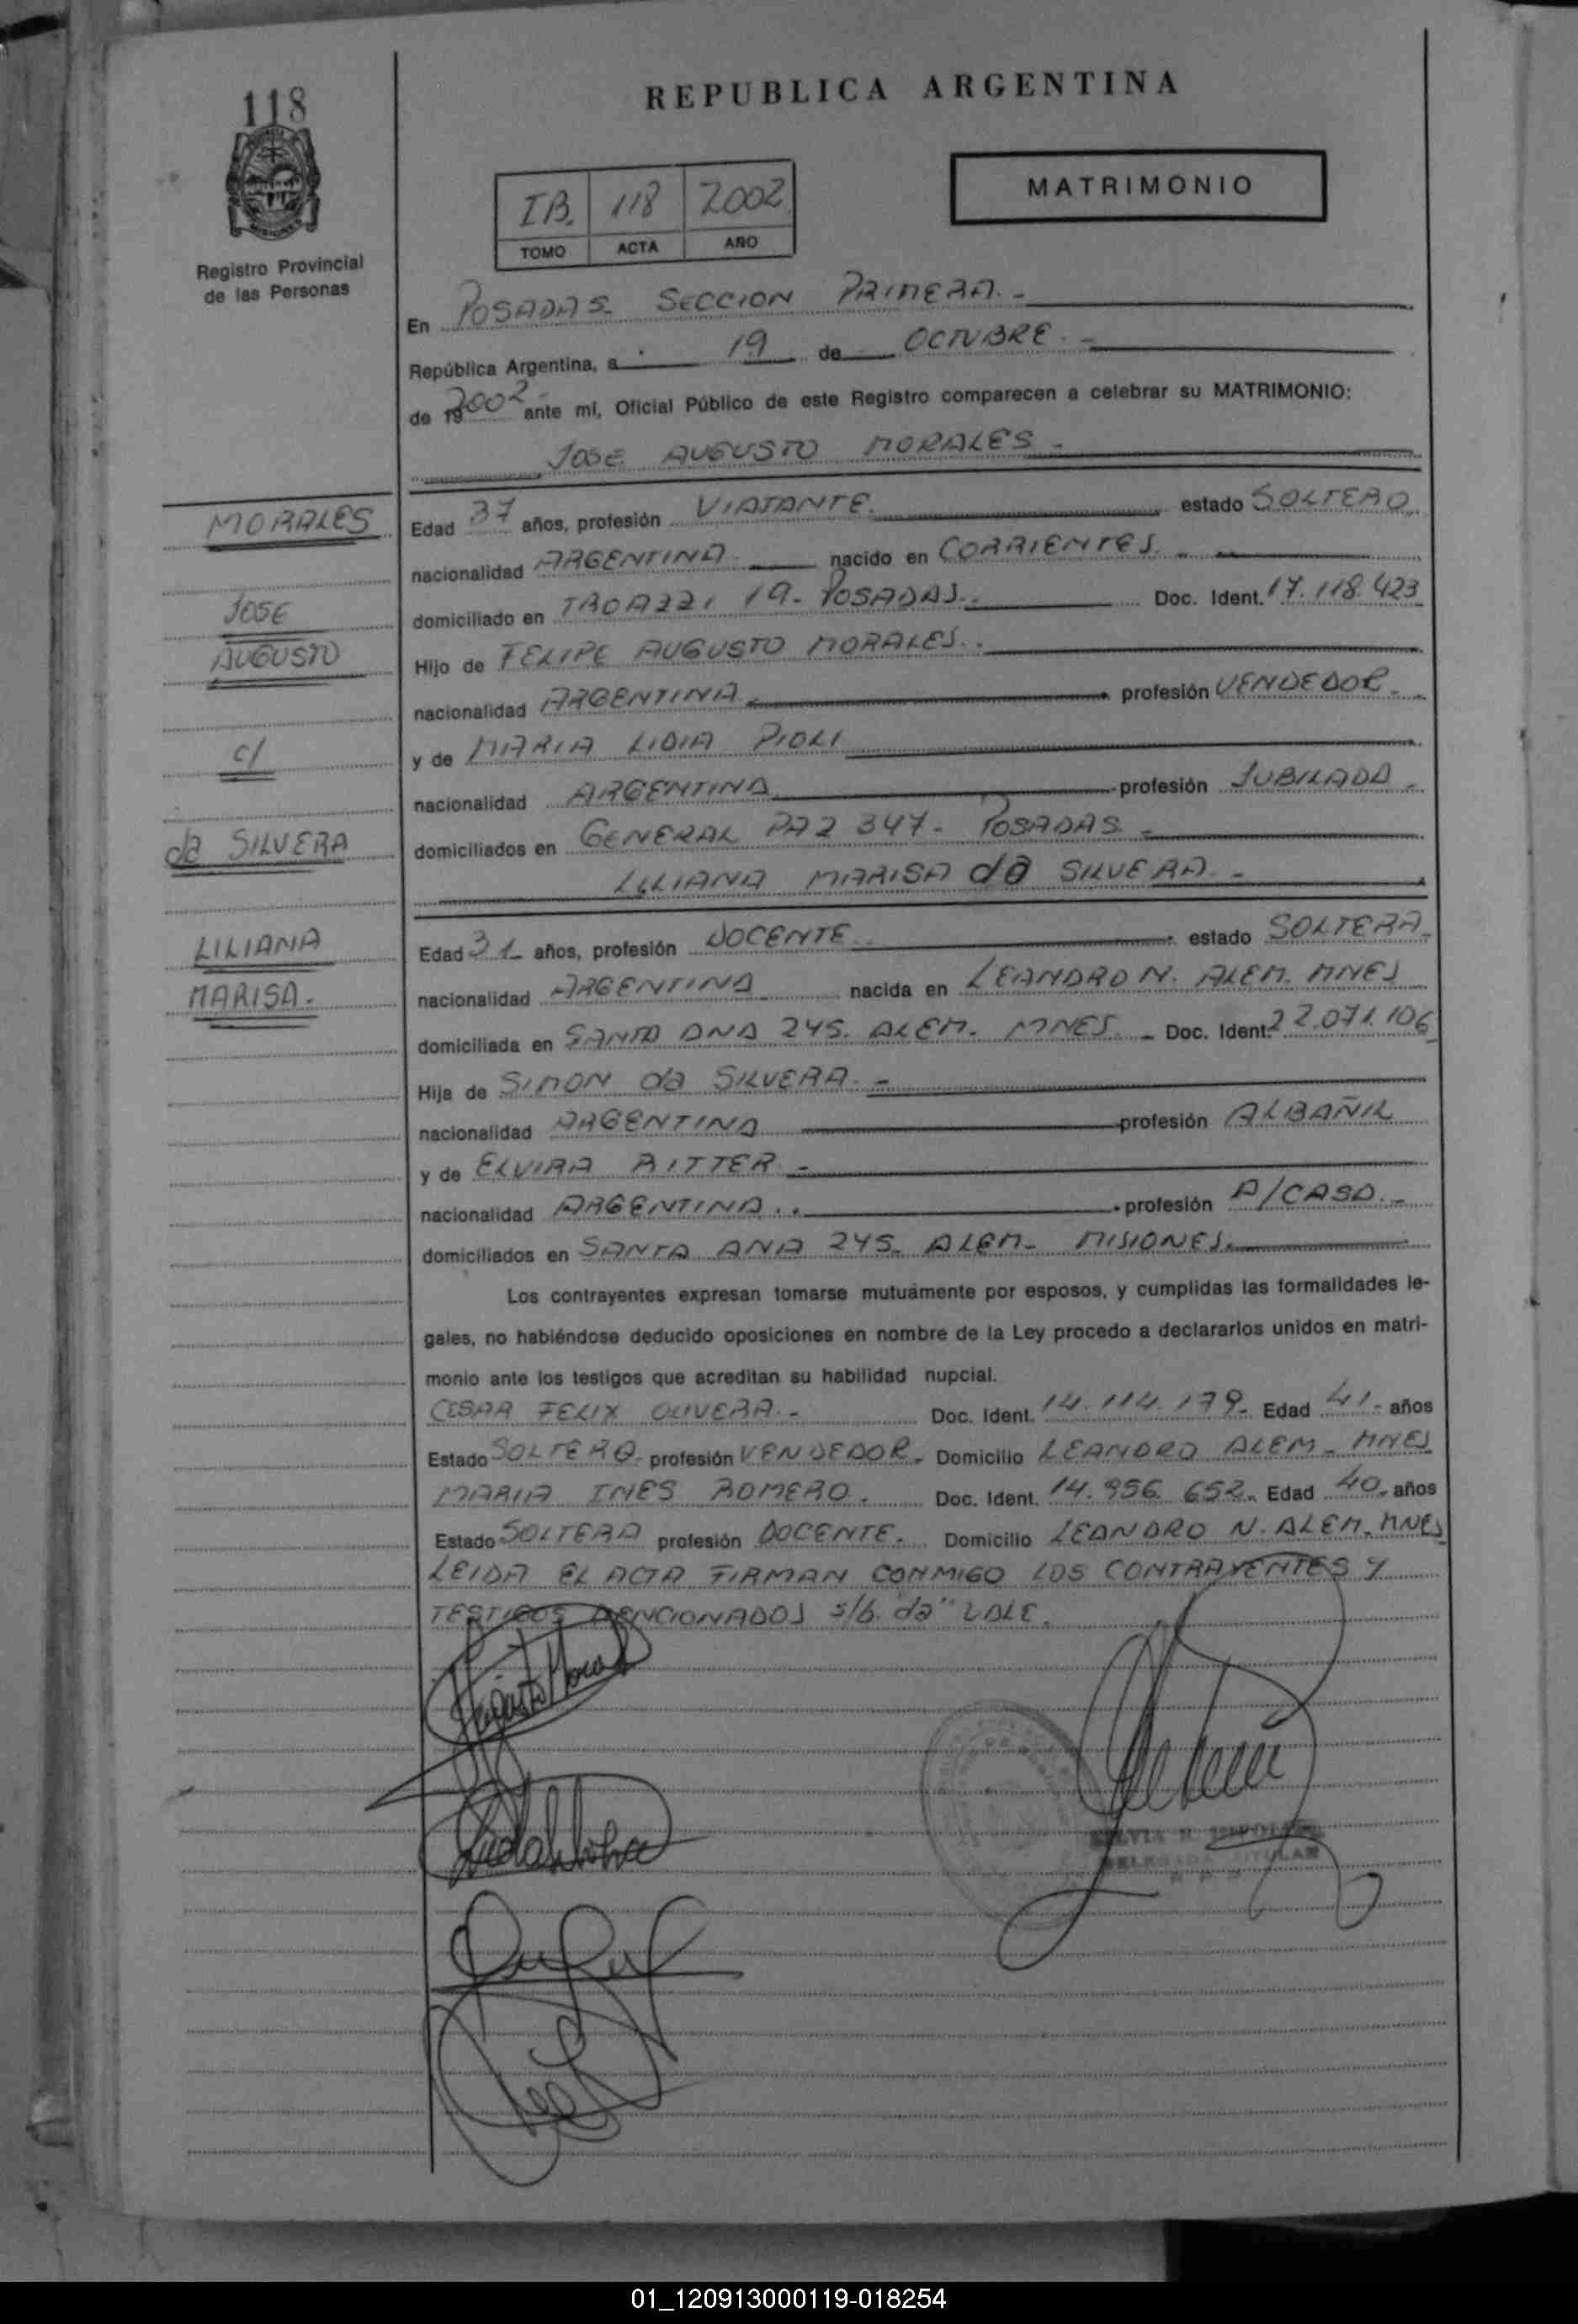 118
REPUBLICA ARGENTINA
MATRIMONIO
IB. 118 2002
TOMO ACTA AÑO
Registro Provincial
de las Personas
En POSADAS SECCION PRIMERA.-
República Argentina, a 19 de OCTUBRE.-
de 19 2002 ante mí, Oficial Público de este Registro comparecen a celebrar su MATRIMONIO:
JOSE AUGUSTO MORALES.-
MORALES
JOSE
AUGUSTO
c/
da SILVERA
LILIANA
MARISA.-
Edad 37 años, profesión VIAJANTE. estado SOLTERO
nacionalidad ARGENTINA nacido en CORRIENTES.-
domiciliado en 19- POSADAS.- Doc. Ident. 17.118.423
Hijo de FELIPE AUGUSTO MORALES.-
nacionalidad ARGENTINA profesión VENDEDOR.-
y de MARIA LIDIA PIOLI
nacionalidad ARGENTINA profesión JUBILADA.-
domiciliados en GENERAL PAZ 347- POSADAS.-
LILIANA MARISA da SILVERA.-
Edad 31 años, profesión DOCENTE estado SOLTERA.
nacionalidad ARGENTINA nacida en LEANDRO N. ALEM. MNES
domiciliada en SANTA ANA 245. ALEM- MNES.- Doc. Ident. 22.071.106
Hija de SIMON da SILVERA.-
nacionalidad ARGENTINA profesión ALBAÑIL
y de ELVIRA RITTER.-
nacionalidad ARGENTINA.. profesión A/CASA.-
domiciliados en SANTA ANA 245- ALEM- MISIONES.
Los contrayentes expresan tomarse mutuamente por esposos, y cumplidas las formalidades le-
gales, no habiéndose deducido oposiciones en nombre de la Ley procedo a declararlos unidos en matri-
monio ante los testigos que acreditan su habilidad nupcial.
CESAR FELIX OLIVERA.- Doc. Ident. 14.114.179- Edad 41- años
Estado SOLTERO- profesión VENDEDOR. Domicilio LEANDRO ALEM- MNES
MARIA INES ROMERO. Doc. Ident. 14.956.652.. Edad 40- años
Estado SOLTERA profesión DOCENTE. Domicilio LEANDRO N. ALEM. MNES
LEIDA EL ACTA FIRMAN CONMIGO LOS CONTRAYENTES Y
TESTIGOS MENCIONADOS s/b. "da" VALE.
TITULAR
01_120913000119-018254